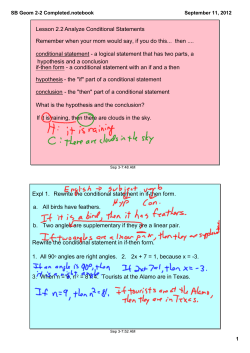 SB Geom 2-2 Completed.notebook
September 11, 2012
Lesson 2.2 Analyze Conditional Statements
Remember when your mom would say, if you do this... then ....
conditional statement - a logical statement that has two parts, a
hypothesis and a conclusion
if-then form - a conditional statement with an if and a then
hypothesis - the "if" part of a conditional statement
conclusion - the "then" part of a conditional statement
What is the hypothesis and the conclusion?
If it is raining, then there are clouds in the sky.
H: it is raining
C: there are clouds in the sky
Sep 3-7:48 AM
English → subject verb
Hyp Con.
Expl 1. Rewrite the conditional statement in if-then form.
a. All birds have feathers.
If it is a bird, then it has feathers.
b. Two angles are supplementary if they are a linear pair.
If two angles are a linear pair, then they are supple
Rewrite the conditional statement in if-then form.
1. All 90° angles are right angles. 2. 2x + 7 = 1, because x = -3.
If an angle is 90°, then
If 2x+7=1, then x = -3.
3. When n = 9, n² = 81. Tourists at the Alamo are in Texas.
If n=9, then n²=81.
If tourists are at the Alamo,
then they are in Texas.
Sep 3-7:52 AM
1